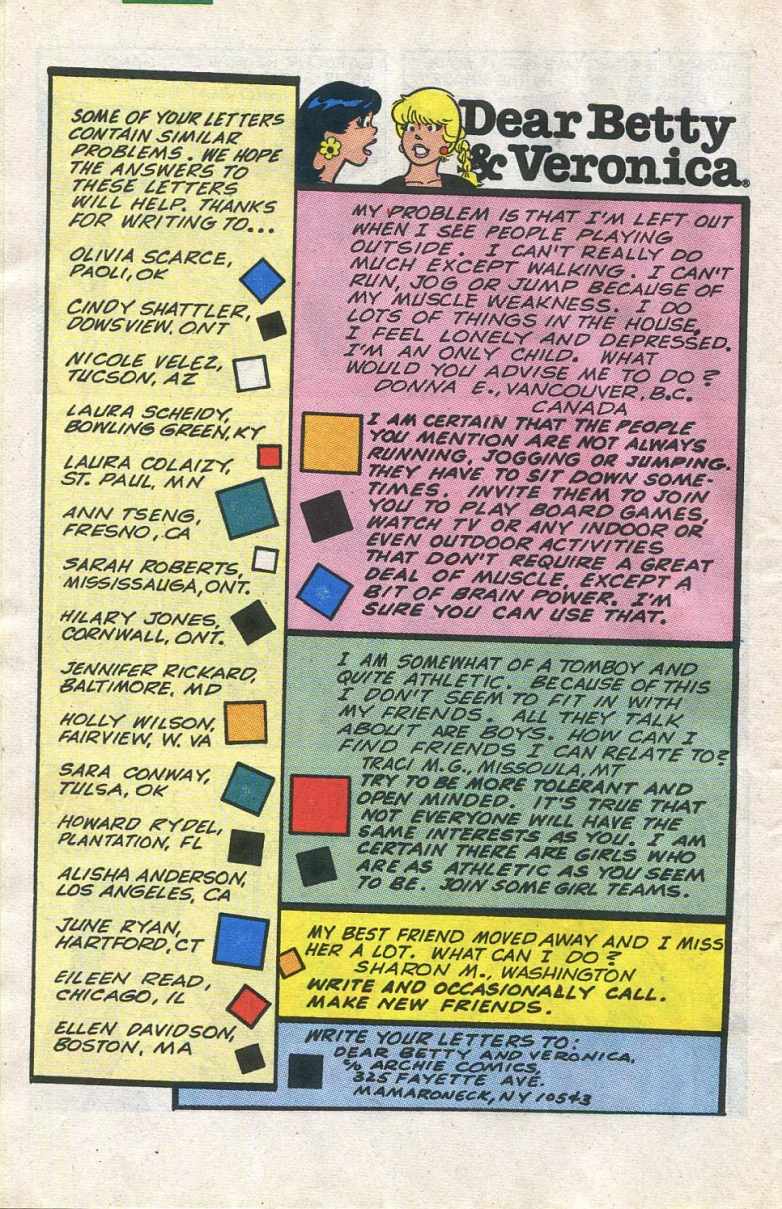 SOME OF YOUR LETTERS
CONTAIN SIMILAR
PROBLEMS. WE HOPE
THE ANSWERS TO
THESE LETTERS
WILL HELP. THANKS
FOR WRITING TO...
OLIVIA SCARCE,
PAOLI, OK
CINDY SHATTLER,
DOWSVIEW, ONT
NICOLE VELEZ,
TUCSON, AZ
LAURA SCHEIDY,
BOWLING GREEN, KY
LAURA COLAIZY,
ST. PAUL, MN
ANN TSENG,
FRESNO, CA
SARAH ROBERTS,
MISSISSAUGA, ONT.
HILARY JONES,
CORNWALL, ONT.
JENNIFER RICKARD,
BALTIMORE, MD
HOLLY WILSON,
FAIRVIEW, W. VA
SARA CONWAY,
TULSA, OK
HOWARD RYDEL,
PLANTATION, FL
ALISHA ANDERSON,
LOS ANGELES, CA
JUNE RYAN,
HARTFORD, CT
EILEEN READ,
CHICAGO, IL
ELLEN DAVIDSON,
BOSTON, MA
Dear Betty
& Veronica®
MY PROBLEM IS THAT I'M LEFT OUT
WHEN I SEE PEOPLE PLAYING
OUTSIDE. I CAN'T REALLY DO
MUCH EXCEPT WALKING. I CAN'T
RUN, JOG OR JUMP BECAUSE OF
MY MUSCLE WEAKNESS. I DO
LOTS OF THINGS IN THE HOUSE,
I FEEL LONELY AND DEPRESSED.
I'M AN ONLY CHILD. WHAT
WOULD YOU ADVISE ME TO DO?
DONNA E., VANCOUVER, B.C.
CANADA
I AM CERTAIN THAT THE PEOPLE
YOU MENTION ARE NOT ALWAYS
RUNNING, JOGGING OR JUMPING.
THEY HAVE TO SIT DOWN SOME-
TIMES. INVITE THEM TO JOIN
YOU TO PLAY BOARD GAMES,
WATCH TV OR ANY INDOOR OR
EVEN OUTDOOR ACTIVITIES
THAT DON'T REQUIRE A GREAT
DEAL OF MUSCLE, EXCEPT A
BIT OF BRAIN POWER. I'M
SURE YOU CAN USE THAT.
I AM SOMEWHAT OF A TOMBOY AND
QUITE ATHLETIC. BECAUSE OF THIS
I DON'T SEEM TO FIT IN WITH
MY FRIENDS. ALL THEY TALK
ABOUT ARE BOYS. HOW CAN I
FIND FRIENDS I CAN RELATE TO?
TRACI M.G., MISSOULA, MT
TRY TO BE MORE TOLERANT AND
OPEN MINDED. IT'S TRUE THAT
NOT EVERYONE WILL HAVE THE
SAME INTERESTS AS YOU. I AM
CERTAIN THERE ARE GIRLS WHO
ARE AS ATHLETIC AS YOU SEEM
TO BE. JOIN SOME GIRL TEAMS.
MY BEST FRIEND MOVED AWAY AND I MISS
HER A LOT. WHAT CAN I DO?
SHARON M., WASHINGTON
WRITE AND OCCASIONALLY CALL.
MAKE NEW FRIENDS.
WRITE YOUR LETTERS TO:
DEAR BETTY AND VERONICA,
c/o ARCHIE COMICS,
325 FAYETTE AVE.
MAMARONECK, NY 10543